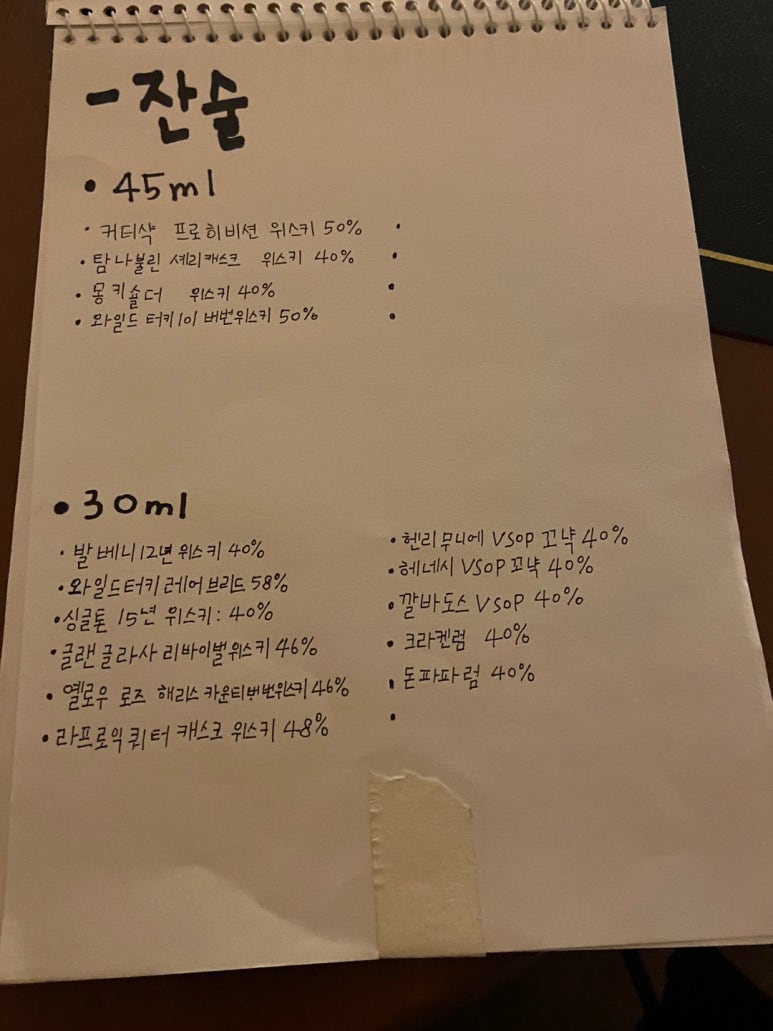 - 잔술
• 45ml
• 커티샥 프로히비션 위스키 50%
• 탐나불린 셰리캐스크 위스키 40%
• 몽키숄더 위스키 40%
• 와일드터키101 버번위스키 50%
• 30ml
• 발베니12년 위스키 40%
• 와일드터키 레어브리드 58%
• 싱글톤 15년 위스키: 40%
• 글랜글라사 리바이벌위스키 46%
• 옐로우 로즈 해리스 카운티버번위스키 46%
• 라프로익 쿼터 캐스크 위스키 48%
• 헨리무니에 VSOP 꼬냑 40%
• 헤네시 VSOP 꼬냑 40%
• 깔바도스 VSOP 40%
• 크라켄럼 40%
• 돈파파럼 40%